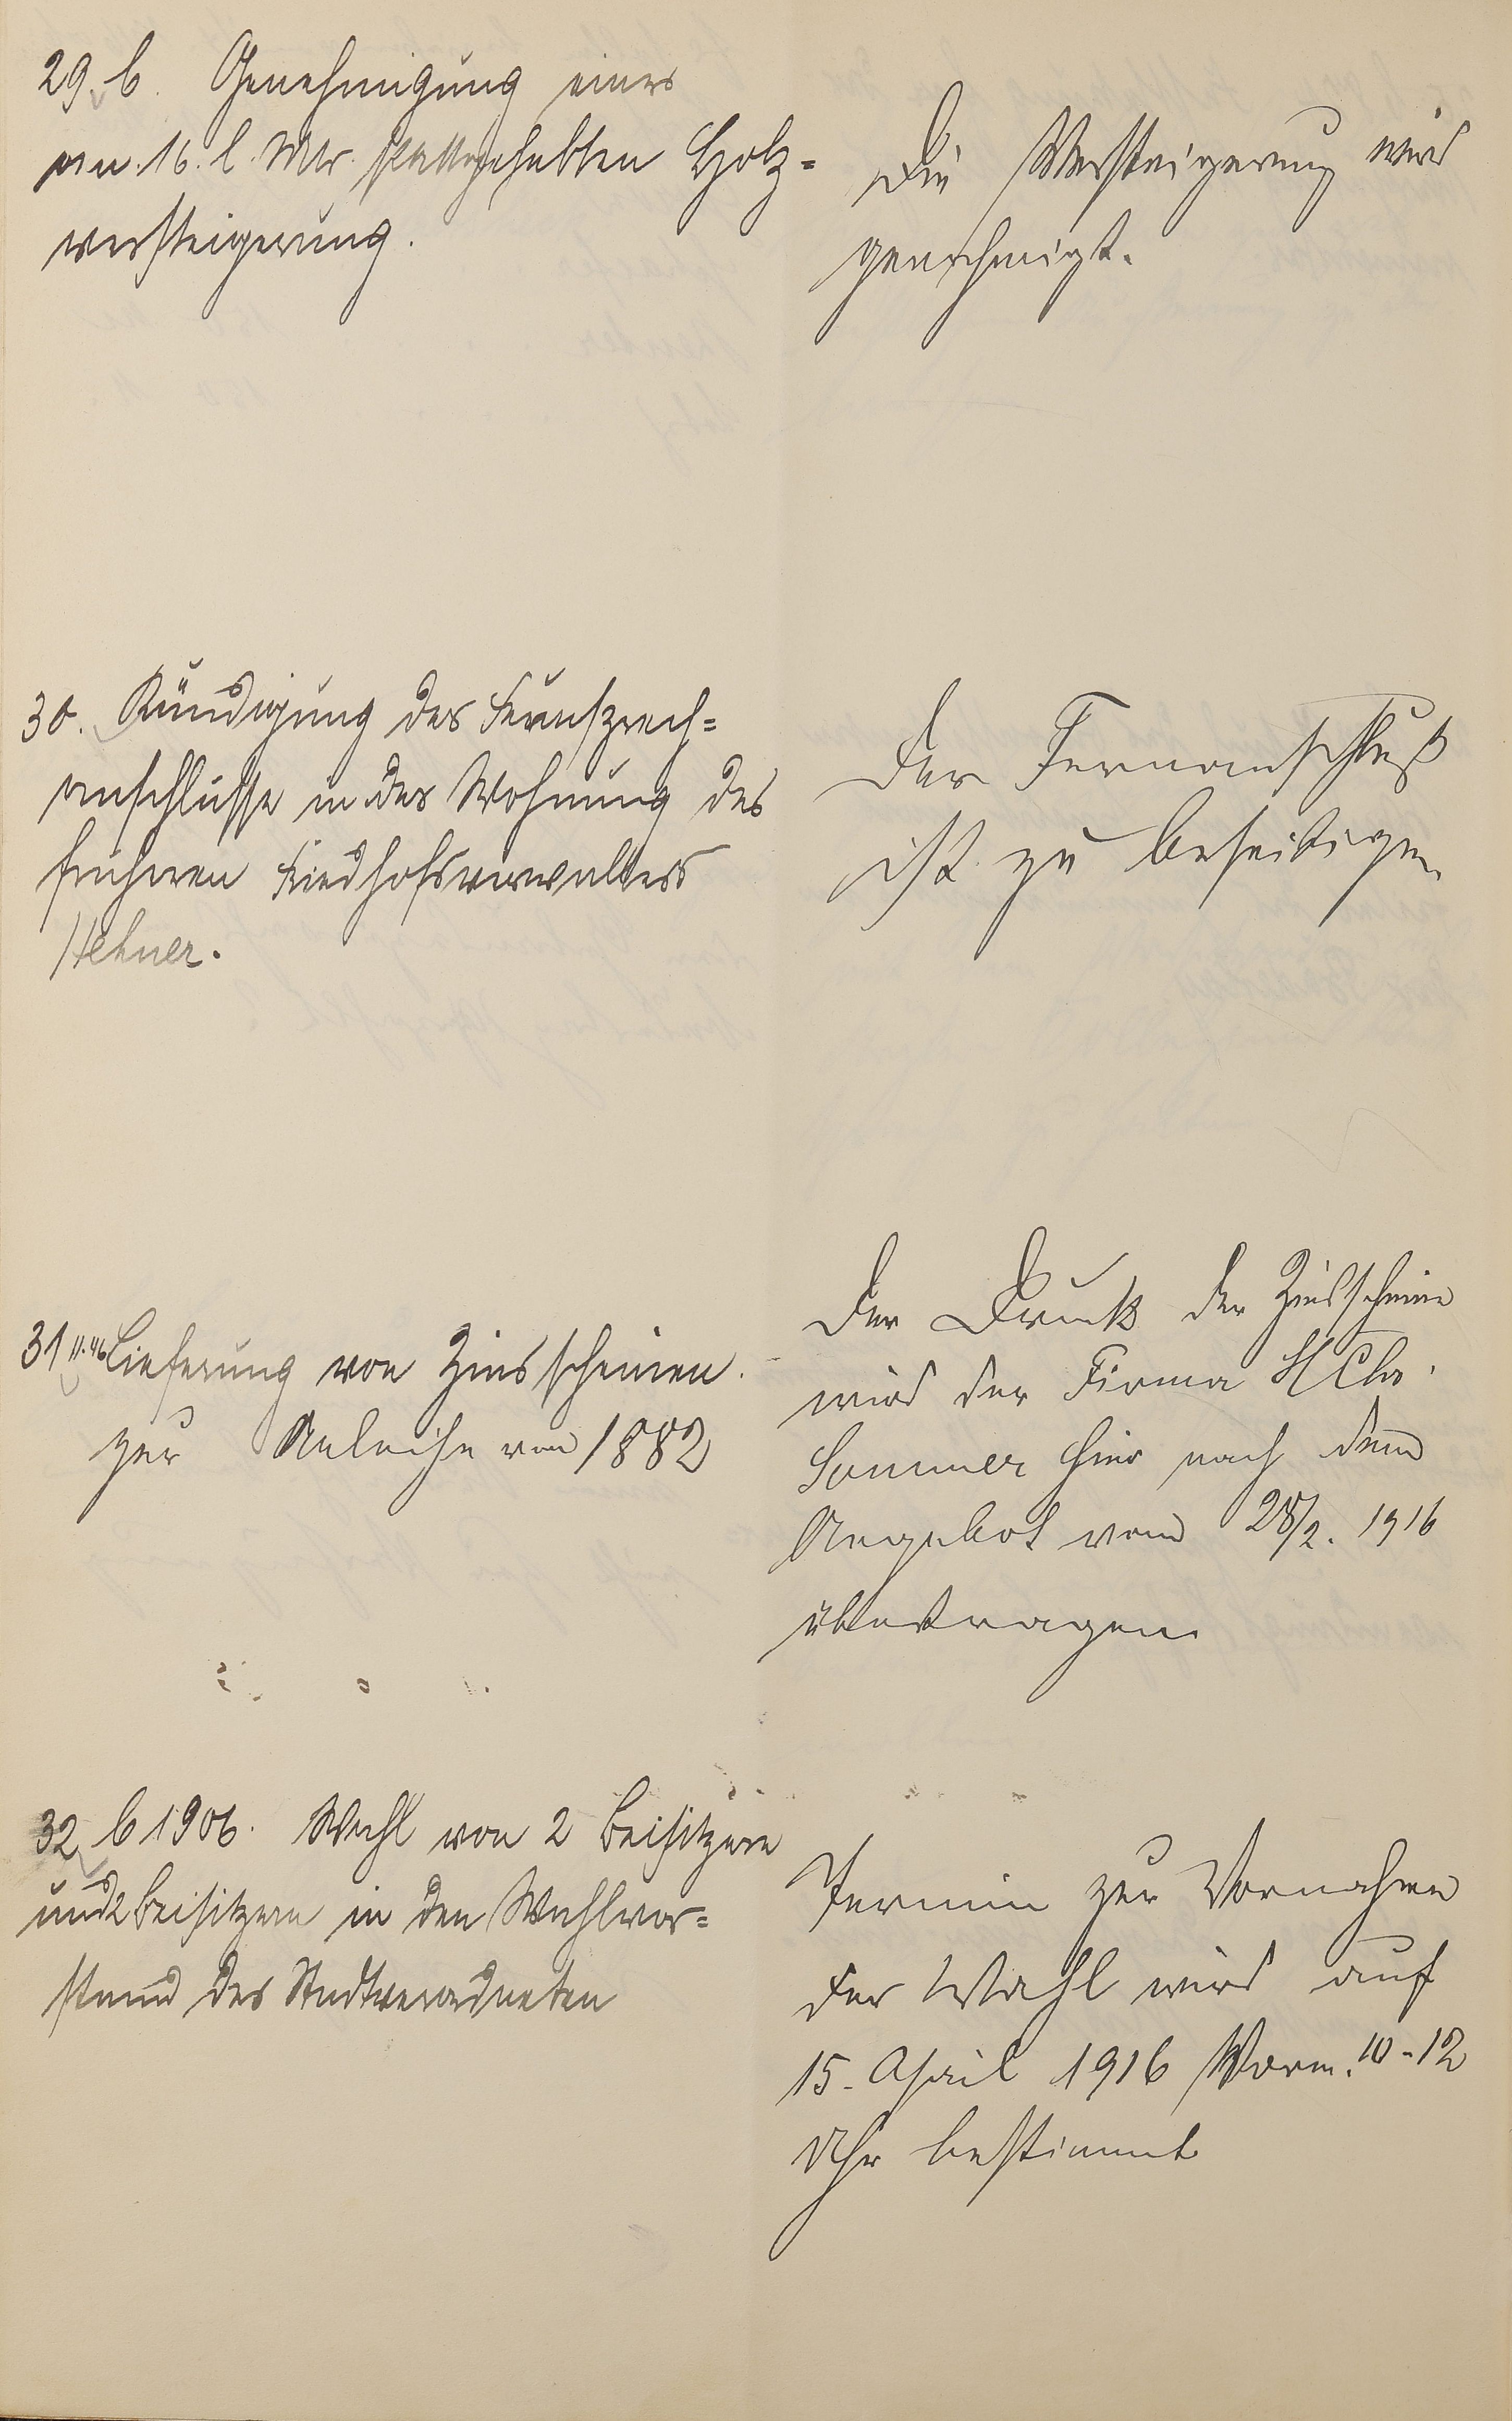 29. b. Genehmigung einer
am 16. l. Mts. stattgehabten Holz=
versteigerung.
Die Versteigerung wird
genehmigt.
30. Kündigung des Fernsprech=
anschlusse in der Wohnung des
früheren Friedhofsverwalters
Hehner.
Der Fernanschluß
ist zu beseitigen
31 Lieferung von Zinsscheinen.
zur Anleihe von 1882
Der Druck der Zinsscheine
wird der Firma H Chr.
Sommer hier nach dem
Angebot vom 28/2. 1916
übertragen.
32 b 1906. Wahl von 2 Beisitzern
und 2 Beisitzern in den Wahlvor=
stand der Stadtverordneten
Termin zur Vornahme
der Wahl wird auf
15. April 1916 Vorm. 10-12
Uhr bestimmt